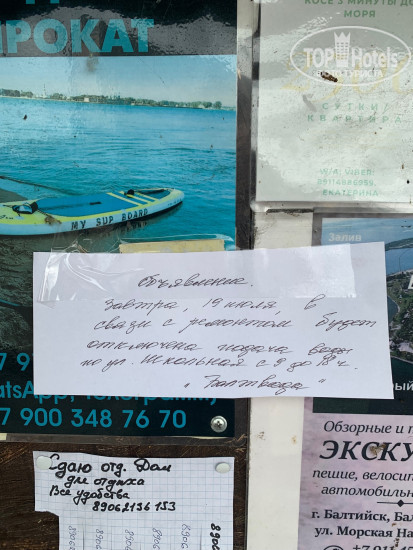 ПРОКАТ
MY SUP BOARD
КОСЕ 3 МИНУТЫ ДО
МОРЯ
TOP Hotels
СУТКИ/
КВАРТИРА
W/A, VIBER:
89114886959,
ЕКАТЕРИНА
Залив
Объявление.
Завтра, 19 июля, в
связи с ремонтом будет
отключена подача воды
по ул. Школьная с 9 до 18 ч.
"Балтвода"
7 900 348 76 70
Сдаю отд. Дом
для отдыха
Все удобства
89062136153
Обзорные и
ЭКСКУ
пешие, велоси
автомобильн
г. Балтийск, Бал
ул. Морская На